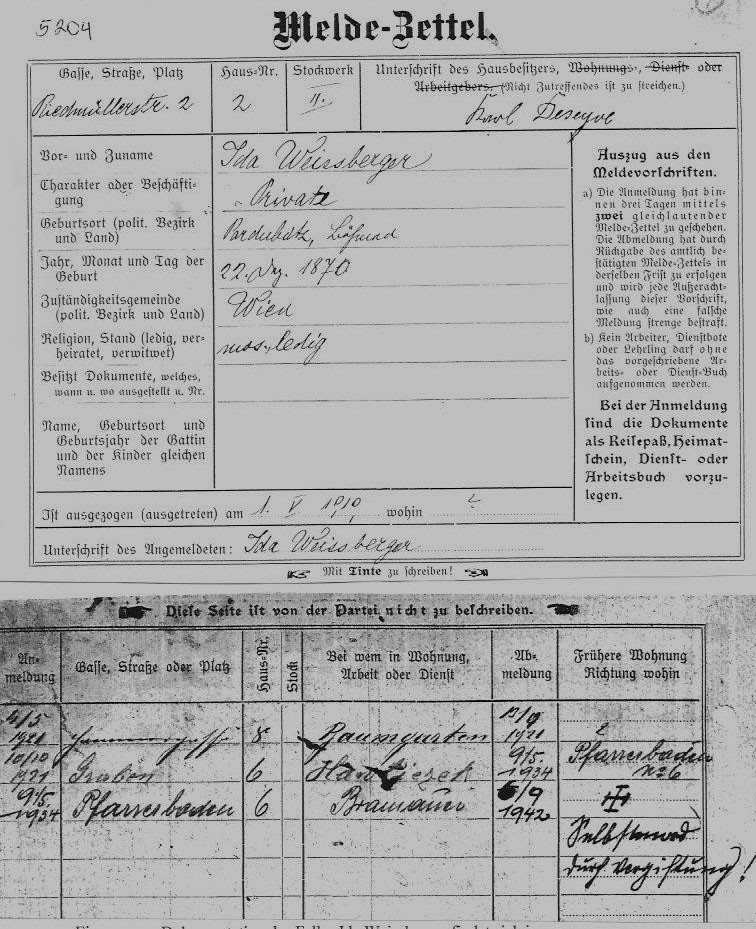 5204
Melde-Zettel.
Gasse, Straße, Platz
Haus-Nr.
Stockwerk
Unterschrift des Hausbesitzers, Wohnungs-, Dienst- oder
Arbeitgebers. (Nicht Zutreffendes ist zu streichen.)
Riedmüllerstr. 2
2
II.
Karl
Vor- und Zuname
Ida Weissberger
Charakter oder Beschäfti-
gung
Private
Geburtsort (polit. Bezirk
und Land)
Pardubitz, Böhmen
Jahr, Monat und Tag der
Geburt
22. Dez. 1870
Zuständigkeitsgemeinde
(polit. Bezirk und Land)
Wien
Religion, Stand (ledig, ver-
heiratet, verwitwet)
mos., ledig
Besitzt Dokumente, welches,
wann u. wo ausgestellt u. Nr.
Name, Geburtsort und
Geburtsjahr der Gattin
und der Kinder gleichen
Namens
Auszug aus den
Meldevorschriften.
a) Die Anmeldung hat bin-
nen drei Tagen mittels
zwei gleichlautender
Melde-Zettel zu geschehen.
Die Abmeldung hat durch
Rückgabe des amtlich be-
stätigten Melde-Zettels in
derselben Frist zu erfolgen
und wird jede Außeracht-
lassung dieser Vorschrift,
wie auch eine falsche
Meldung strenge bestraft.
b) Kein Arbeiter, Dienstbote
oder Lehrling darf ohne
das vorgeschriebene Ar-
beits- oder Dienst-Buch
aufgenommen werden.
Bei der Anmeldung
sind die Dokumente
als Reisepaß, Heimat-
schein, Dienst- oder
Arbeitsbuch vorzu-
legen.
Ist ausgezogen (ausgetreten) am 1. V 1919 wohin ?
Unterschrift des Angemeldeten: Ida Weissberger
Mit Tinte zu schreiben!
Diese Seite ist von der Partei nicht zu beschreiben.
An-
meldung
Gasse, Straße oder Platz
Haus-Nr.
Stock
Bei wem in Wohnung,
Arbeit oder Dienst
Ab-
meldung
Frühere Wohnung
Richtung wohin
1921
8
Baumgarten
1921
10/10
1921
Graben
6
9/5.
1934
Pfarresboden
No 6
9/5.
1934
Pfarresboden
6
6/9
1942
Selbstmord
durch Vergiftung!